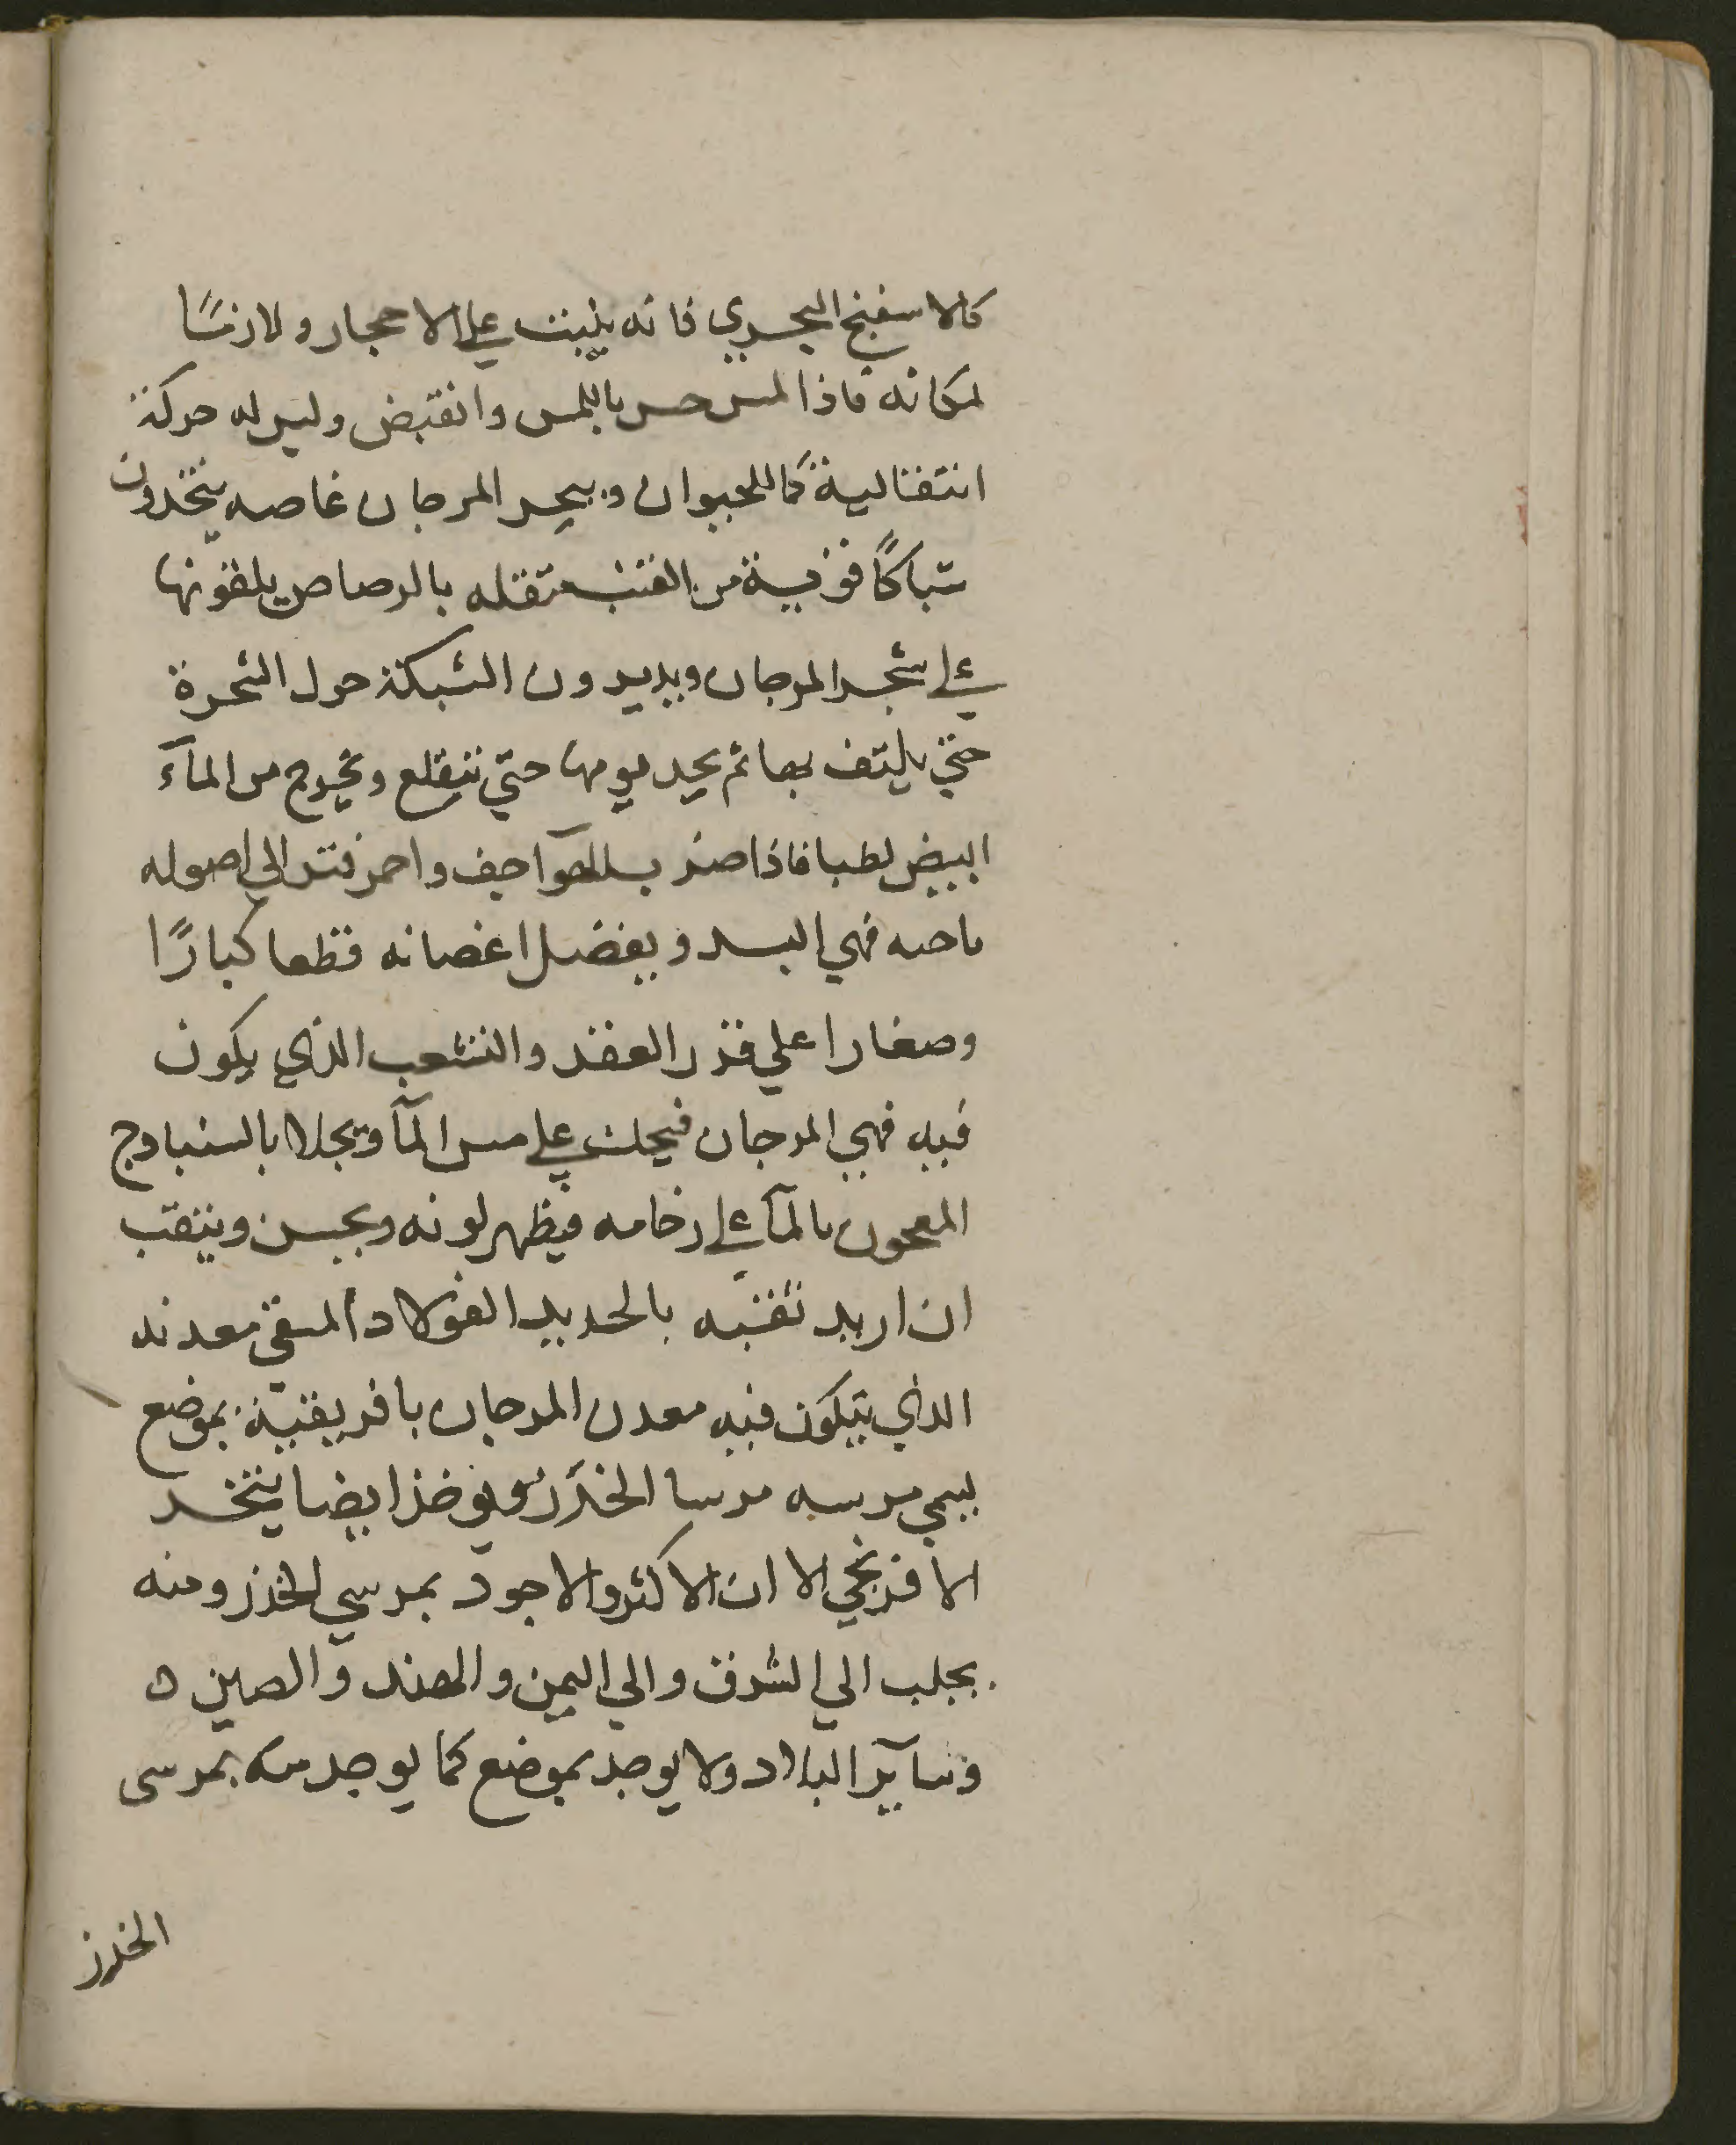 كالاسفنج البحري فانه يثبت علي الاحجار ولازسًا
لمكانه فاذا لمس حس باللمس وانقبض وليس له حركة
انتقالية كما للحيوان وببحر المرجان غاصه يتخدون
شباكًا قوية من القنب متقله بالرصاص يلقونها
علي شجر المرجان ويديرون الشبكة حول الشجرة
حتي يلتف بها ثم يجدبونها حتي تنقلع وتخرج من المآء
ابيض رطبا فاذا ضربه الهوا جف واحمر فتري الي اصوله
ناحيه فهي البسد ويفضل اغصانه قطعا كبارًا
وصغارا علي قدر العقد والتشعب الذي يكون
فيه فهي المرجان فيحك علي مسن المآ ويجلا بالسنبادج
المعجون بالمآ علي رخامه فيظهر لونه ويحسن ويثقب
ان اريد تقبه بالحديد الفولاد المسقي معدنه
الذي يتكون فيه معدن المرجان بافريقية بموضع
يسمي مرسه مرسا الخرز ويوخذ ايضا يتخد
الافرنجي الا ان الاكثر والاجود بمرسي الخرز ومنه
يجلب الي الشرق والي اليمن والهند والصين ه
وسآير البلاد ولا يوجد بموضع كما يوجد منه بمرسى
الخرز